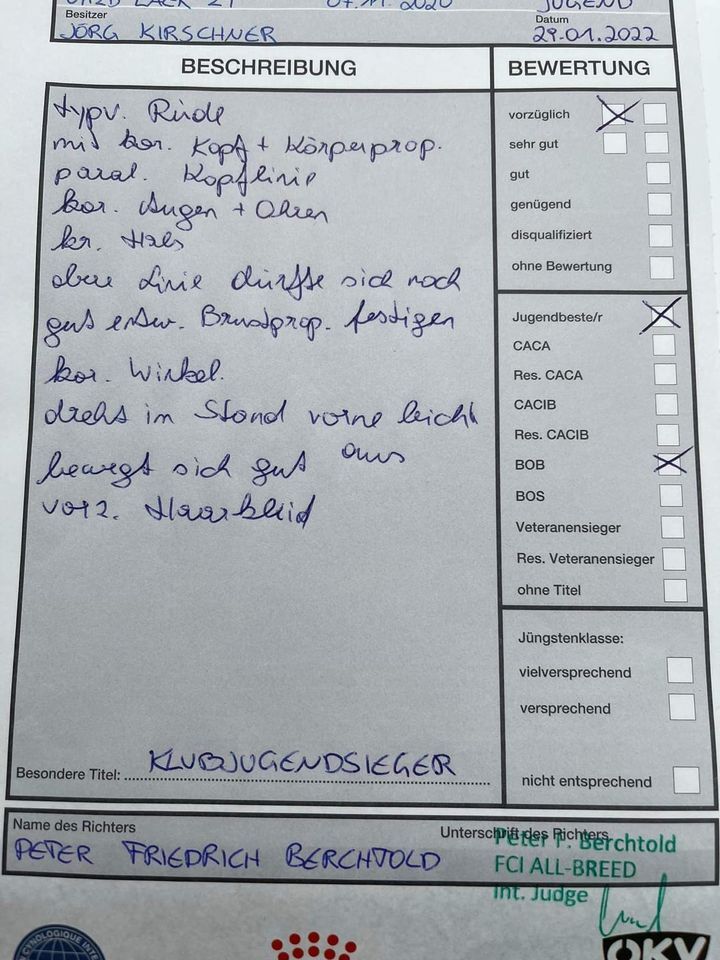 07.11.2020
JUGEND
Besitzer
Datum
JÖRG KIRSCHNER
29.01.2022
BESCHREIBUNG
BEWERTUNG
typv. Rüde
mit kor. Kopf + Körperprop.
paral. Kopflinie
kor. Augen + Ohren
kr. Hals
obere Linie dürfte sich noch
gut entw. Brustprop. festigen
kor. Winkel.
dreht im Stand vorne leicht
aus
bewegt sich gut
vorz. Haarkleid
vorzüglich
sehr gut
gut
genügend
disqualifiziert
ohne Bewertung
Jugendbeste/r
CACA
Res. CACA
CACIB
Res. CACIB
BOB
BOS
Veteranensieger
Res. Veteranensieger
ohne Titel
Jüngstenklasse:
vielversprechend
versprechend
nicht entsprechend
Besondere Titel: KLUBJUGENDSIEGER
Name des Richters
Unterschrift des Richters
PETER FRIEDRICH BERCHTOLD
Peter F. Berchtold
FCI ALL-BREED
Int. Judge
ÖKV